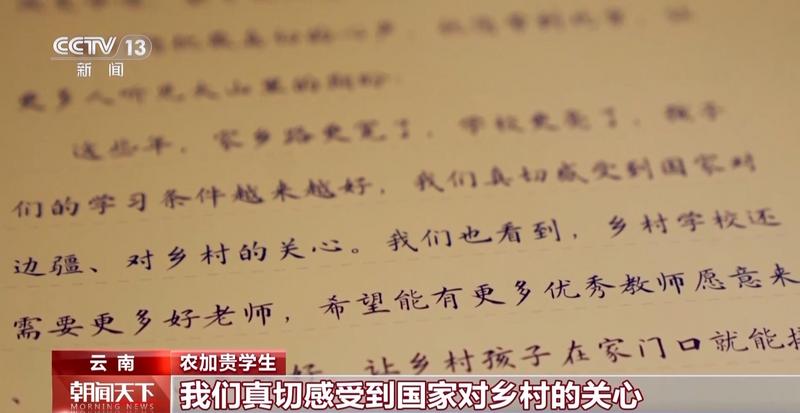 CCTV 13
新闻
更多人听见大山里的期盼。
这些年，家乡路更宽了，学校更亮了，孩子
们的学习条件越来越好，我们真切感受到国家对
边疆、对乡村的关心。我们也看到，乡村学校还
需要更多好老师，希望能有更多优秀教师愿意来
让乡村孩子在家门口就能
云南
农加贵学生
朝闻天下
MORNING NEWS
我们真切感受到国家对乡村的关心